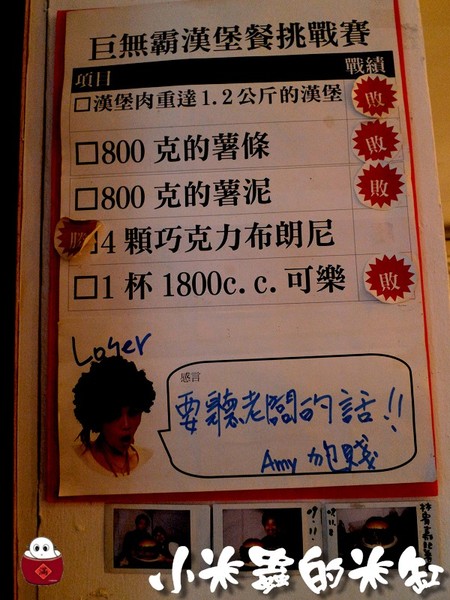 巨無霸漢堡餐挑戰賽
項目 戰績
□漢堡肉重達1.2公斤的漢堡 敗
□800克的薯條 敗
□800克的薯泥 敗
勝 □4顆巧克力布朗尼
□1杯1800c.c.可樂 敗
Loser
感言
要聽老闆的話!!
Amy
小米蟲的米缸